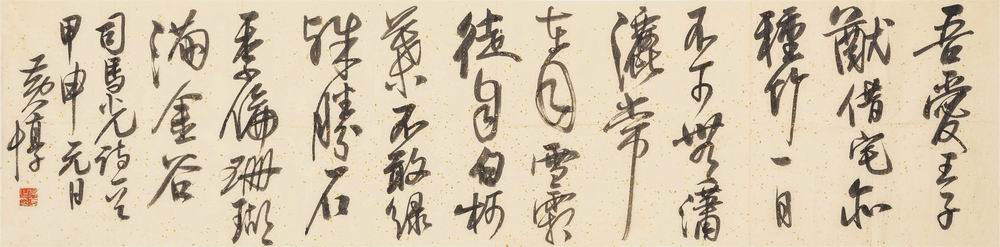 吾愛王子
猷借宅亦
種竹一日
不可無瀟
灑常
在目雪霜
徒自白柯
葉不敢綠
殊勝石
季倫珊瑚
滿金谷
司馬光詩一首
甲申元日
黃惇